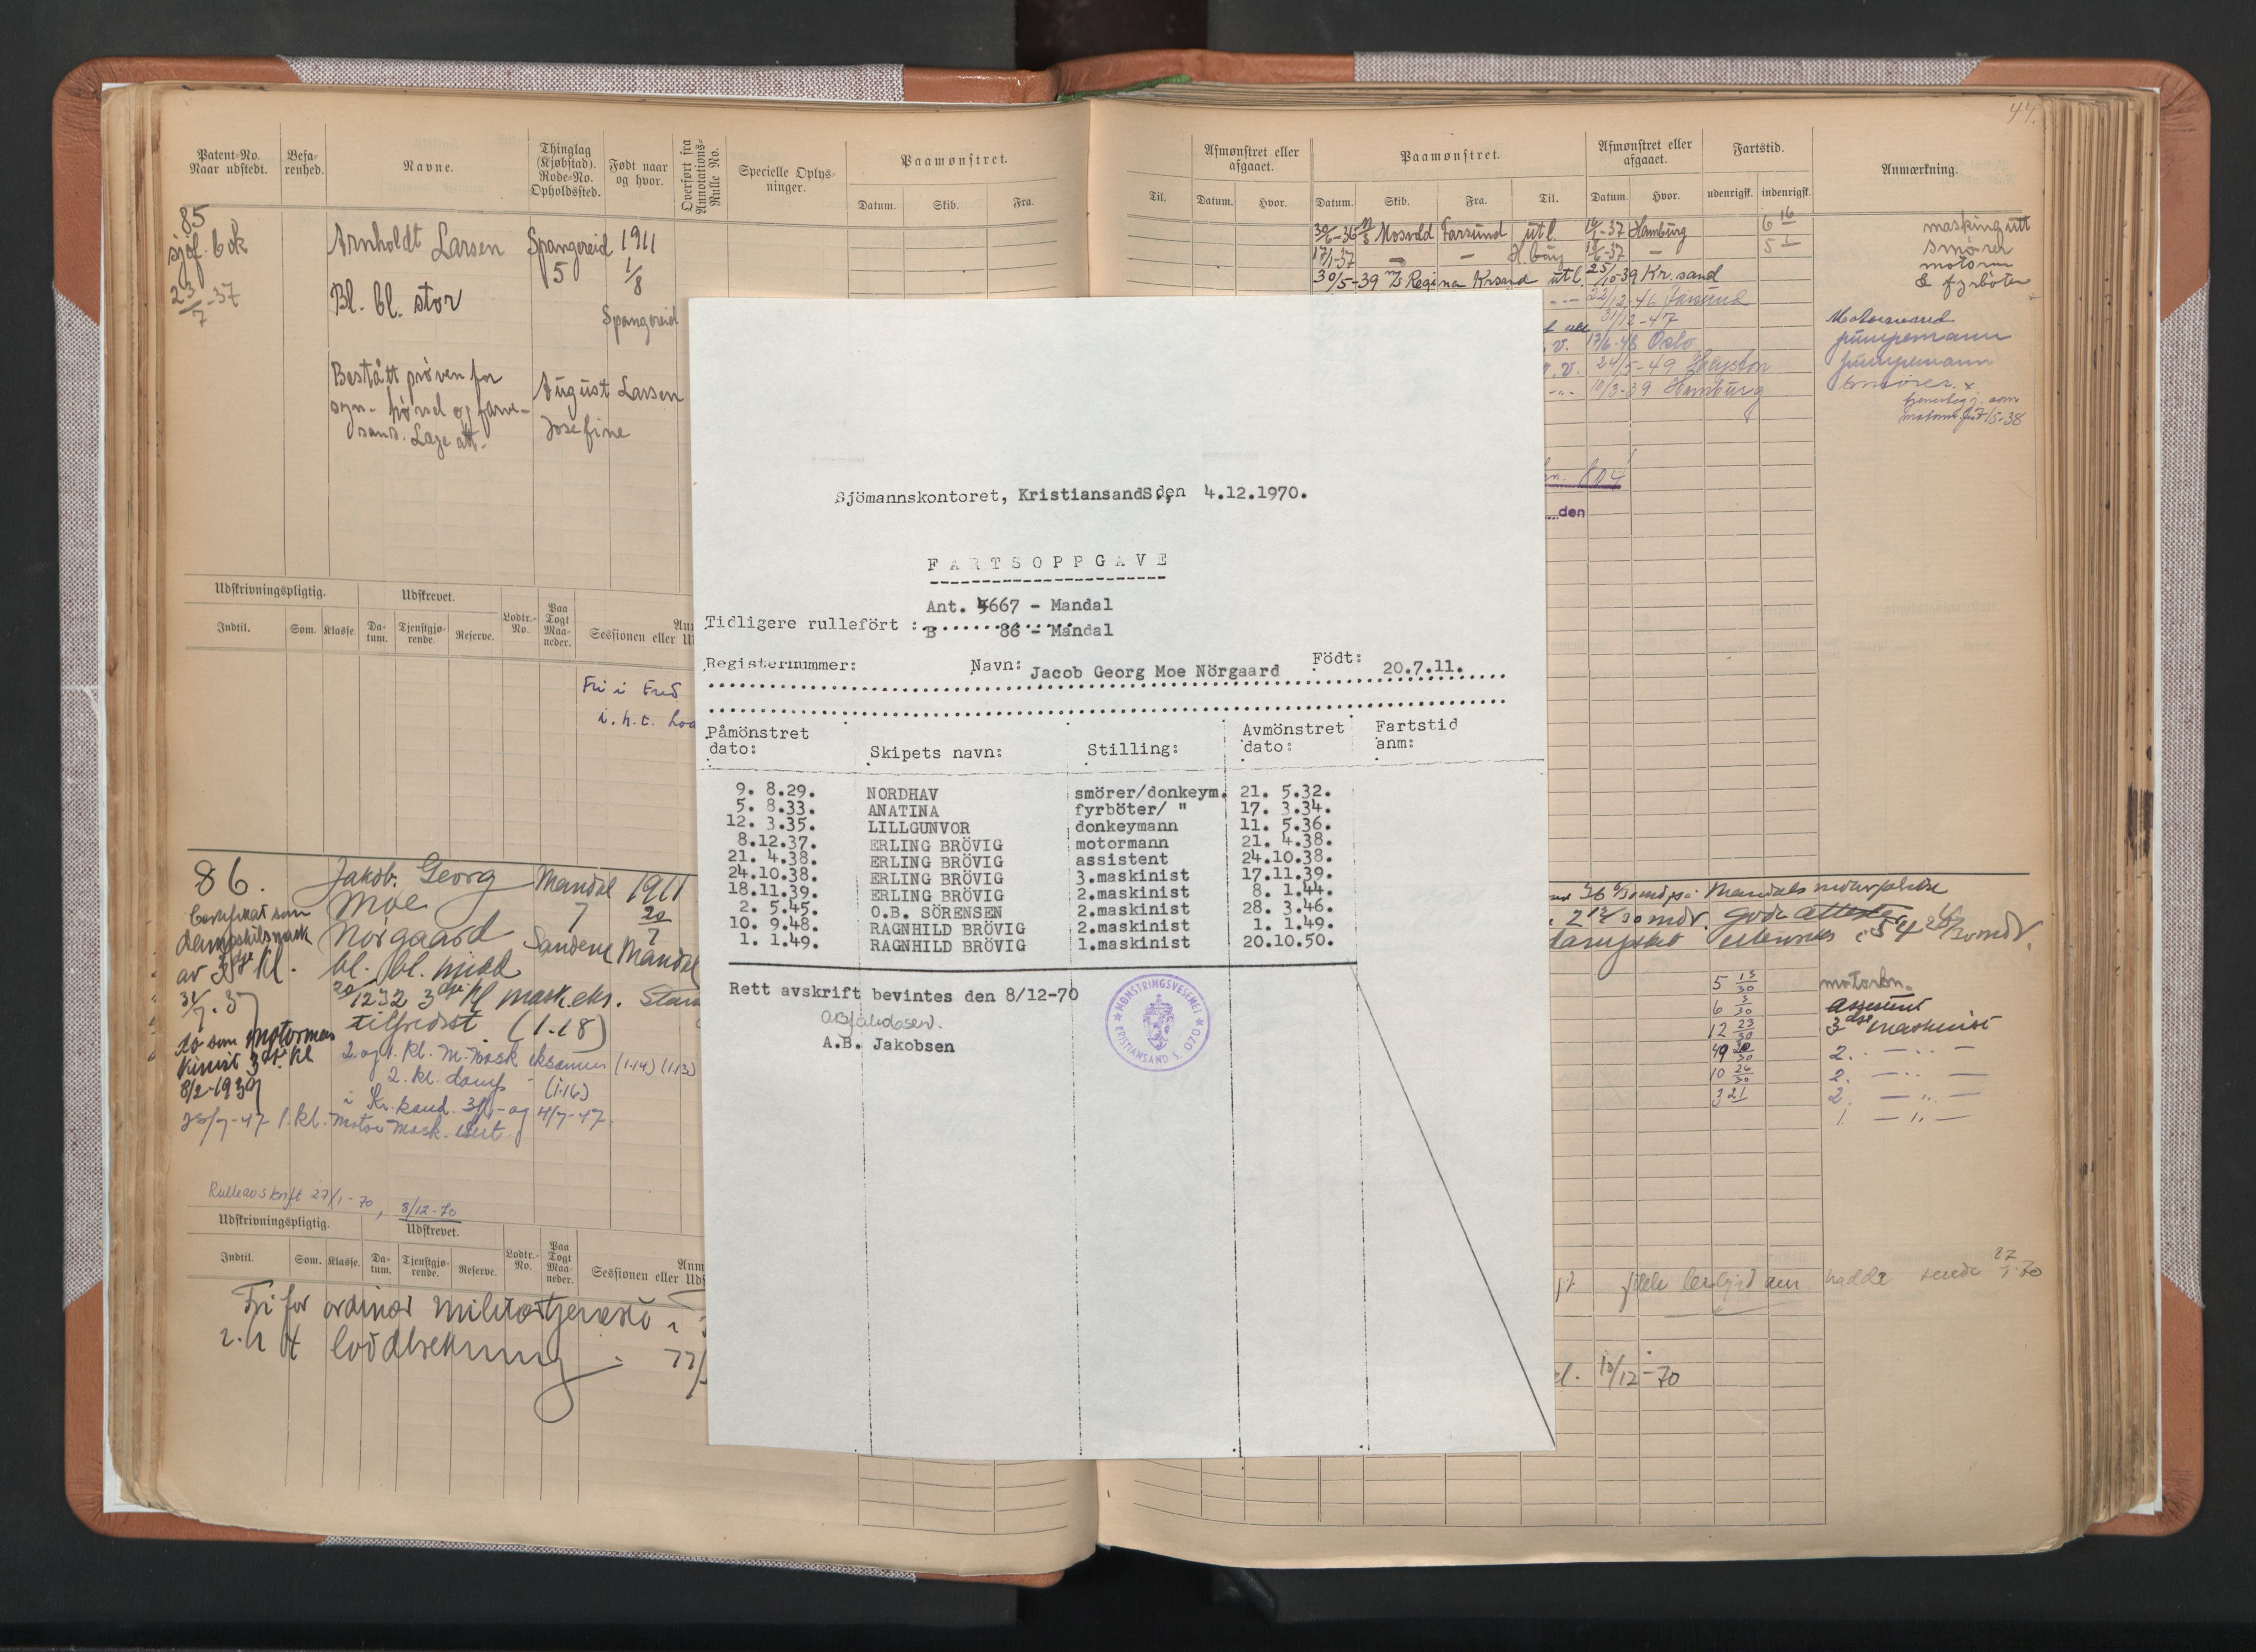 44.
Patent-No.
Naar udstedt.
Befa-
renhed.
Navne.
Thinglag
(Kjøbstad).
Rode-No.
Opholdssted.
Født naar
og hvor.
Overført fra
Annotations-
Rulle No.
Specielle Oplys-
ninger.
Paamønstret.
Datum.
Skib.
Fra.
85
sjøf. bok
23/7-37
Arnholdt Larsen
Bl. bl. stor
Spangereid
5
1911
1/8
Spangereid
Bestått prøven for
syn- hørsel og farve-
sans. Lægeatt.
August Larsen
Josefine
Udskrivningspligtig.
Udskrevet.
Indtil.
Som.
Klasse
Da-
tum.
Tjenstgjø-
rende.
Reserve.
Lodtr.-
No.
Paa
Togt
Maa-
neder.
Sessionen eller
Fri i Fred
86.
Jakob Georg
Moe
Norgaard
Mandal
7
Sandene
1911
20/7
Mandal
av 3dje Kl.
bl. bl. midd
tilfredsst. (1.18)
do som motormas
kinist 3dje kl
8/2-1939
2. og 1. kl. M. mask eksamen (1.14) (1.13)
2. kl. damp - (1.16)
25/7-47 1. kl. Motor Mask. sert.
Rulleavskrift 27/1-70, 8/12-70
Udskrivningspligtig.
Udskrevet.
Indtil.
Som.
Klasse.
Da-
tum.
Tjenstgjø-
rende.
Reserve.
Lodtr.-
No.
Paa
Togt
Maa-
neder.
Sessionen eller
Fri for ordinær militærtjeneste i
Sjömannskontoret, KristiansandS., den 4.12.1970.
FARTSOPPGAVE
Ant. 5667 - Mandal
Tidligere rulleført :
B 86 - Mandal
Registernummer: Navn: Jacob Georg Moe Nörgaard Født: 20.7.11.
Påmönstret
dato:
Skipets navn:
Stilling:
Avmönstret
dato:
Fartstid
anm:
9. 8.29. NORDHAV smörer/donkeym. 21. 5.32.
5. 8.33. ANATINA fyrböter/ " 17. 3.34.
12. 3.35. LILLGUNVOR donkeymann 11. 5.36.
8.12.37. ERLING BRÖVIG motormann 21. 4.38.
21. 4.38. ERLING BRÖVIG assistent 24.10.38.
24.10.38. ERLING BRÖVIG 3.maskinist 17.11.39.
18.11.39. ERLING BRÖVIG 2.maskinist 8. 1.44.
2. 5.45. O.B. SÖRENSEN 2.maskinist 28. 3.46.
10. 9.48. RAGNHILD BRÖVIG 2.maskinist 1. 1.49.
1. 1.49. RAGNHILD BRÖVIG 1.maskinist 20.10.50.
Rett avskrift bevintes den 8/12-70
ABJakobsen.
A.B. Jakobsen
MØNSTRINGSVESENET
KRISTIANSAND S. 0270
Til.
Afmønstret eller
afgaaet.
Datum.
Hvor.
Paamønstret.
Datum.
Skib.
Fra.
Til.
Afmønstret eller
afgaaet.
Datum.
Hvor.
Fartstid.
udenrigsk.
indenrigsk.
Anmærkning.
30/6-36 M/S Mosvold Farsund utl. 16/1-37 Hamburg 6 16 maskingutt
17/1-37 - - H.burg 18/6-37 - 5 1 smører
motorm
30/5-39 M/S Regina Krsand utl. 25/10-39 Kr.sand & fyrbøter
22/12-46 Farsund
31/12-47 Motormand
17/6-48 Oslo pumpemann
24/5-49 pumpemann
10/3-39 Hamburg smører. x
den
Mandals
5 13/30 motorm.
6 3/30 assistent
12 23/30 3dje maskinist
49 20/30 2. - " -
10 26/30 2. - " -
3 21 2. - " -
1. - " -
hadde
10/12-70